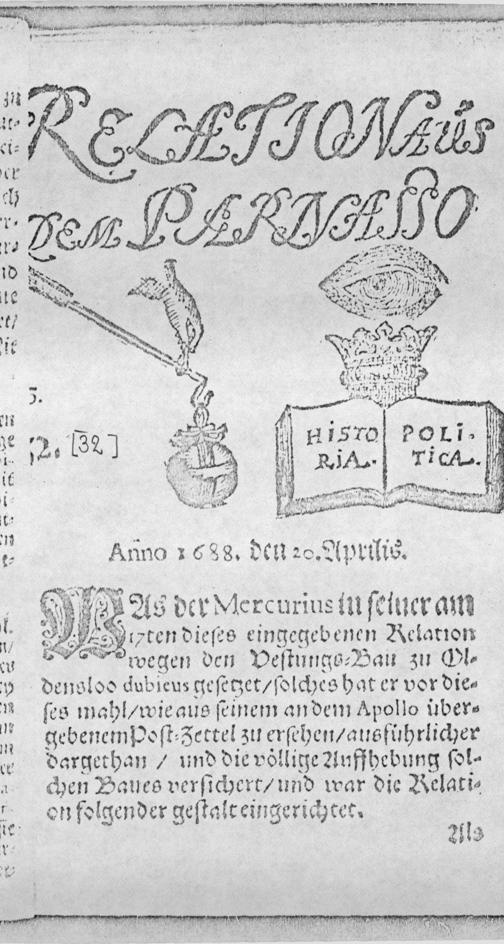 RELATION Aůs
DEM PARNASSO
HISTO
RIA.
POLI-
TICA.
32. [32]
Anno 1688. den 20. Aprilis.
WAs der Mercurius in seiner am
17ten dieses eingegebenen Relation
wegen den Vestungs-Bau zu Ol-
densloo dubieus gesetzet/solches hat er vor die-
ses mahl/wie aus seinem an dem Apollo über-
gebenem Post-Zettel zu ersehen/ausführlicher
dargethan / und die völlige Auffhebung sol-
chen Baues versichert/und war die Relati-
on folgender gestalt eingerichtet.
Als